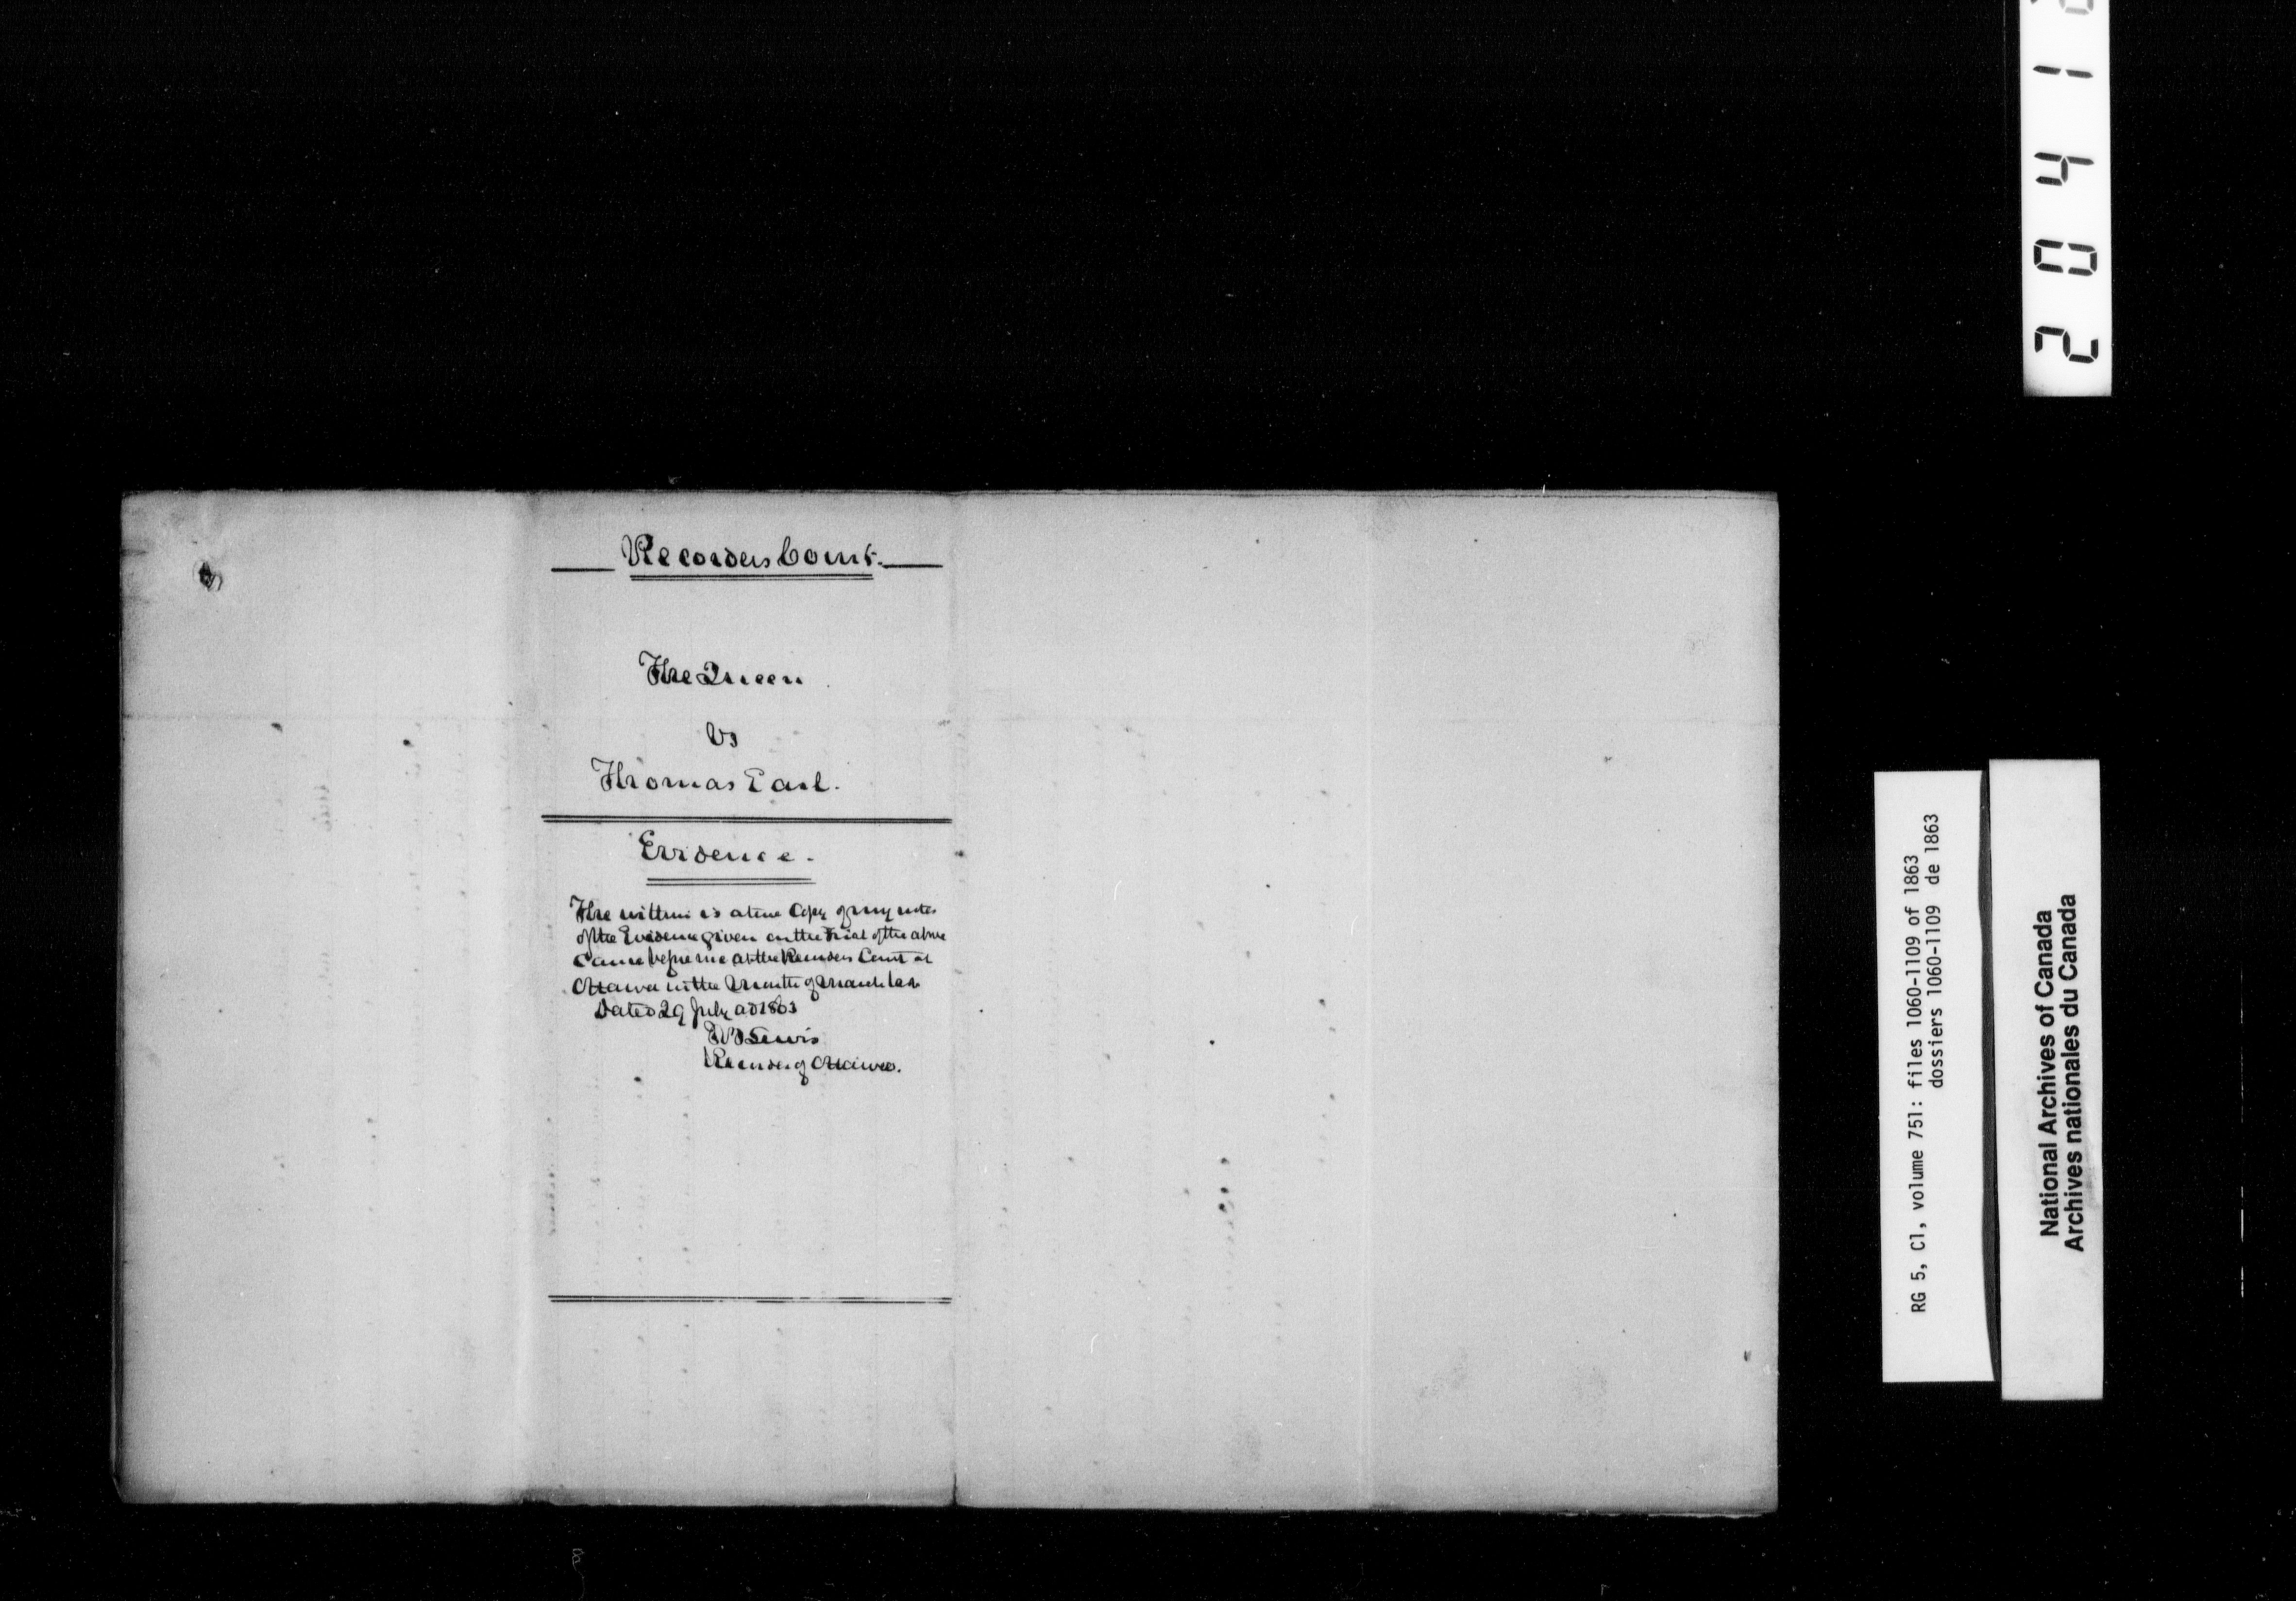 Recorders Court.
The Queen
Vs
Thomas Earl.
Evidence.
The within is a true Copy of my notes
of the Evidence given on the Trial of the above
Cause before me at the Recorders Court at
Ottawa in the Month of March last
Dated 29 July AD 1863
Lewis
Recorder of Ottawa.
2 0 4 1
RG 5, C1, volume 751: files 1060-1109 of 1863
dossiers 1060-1109 de 1863
National Archives of Canada
Archives nationales du Canada